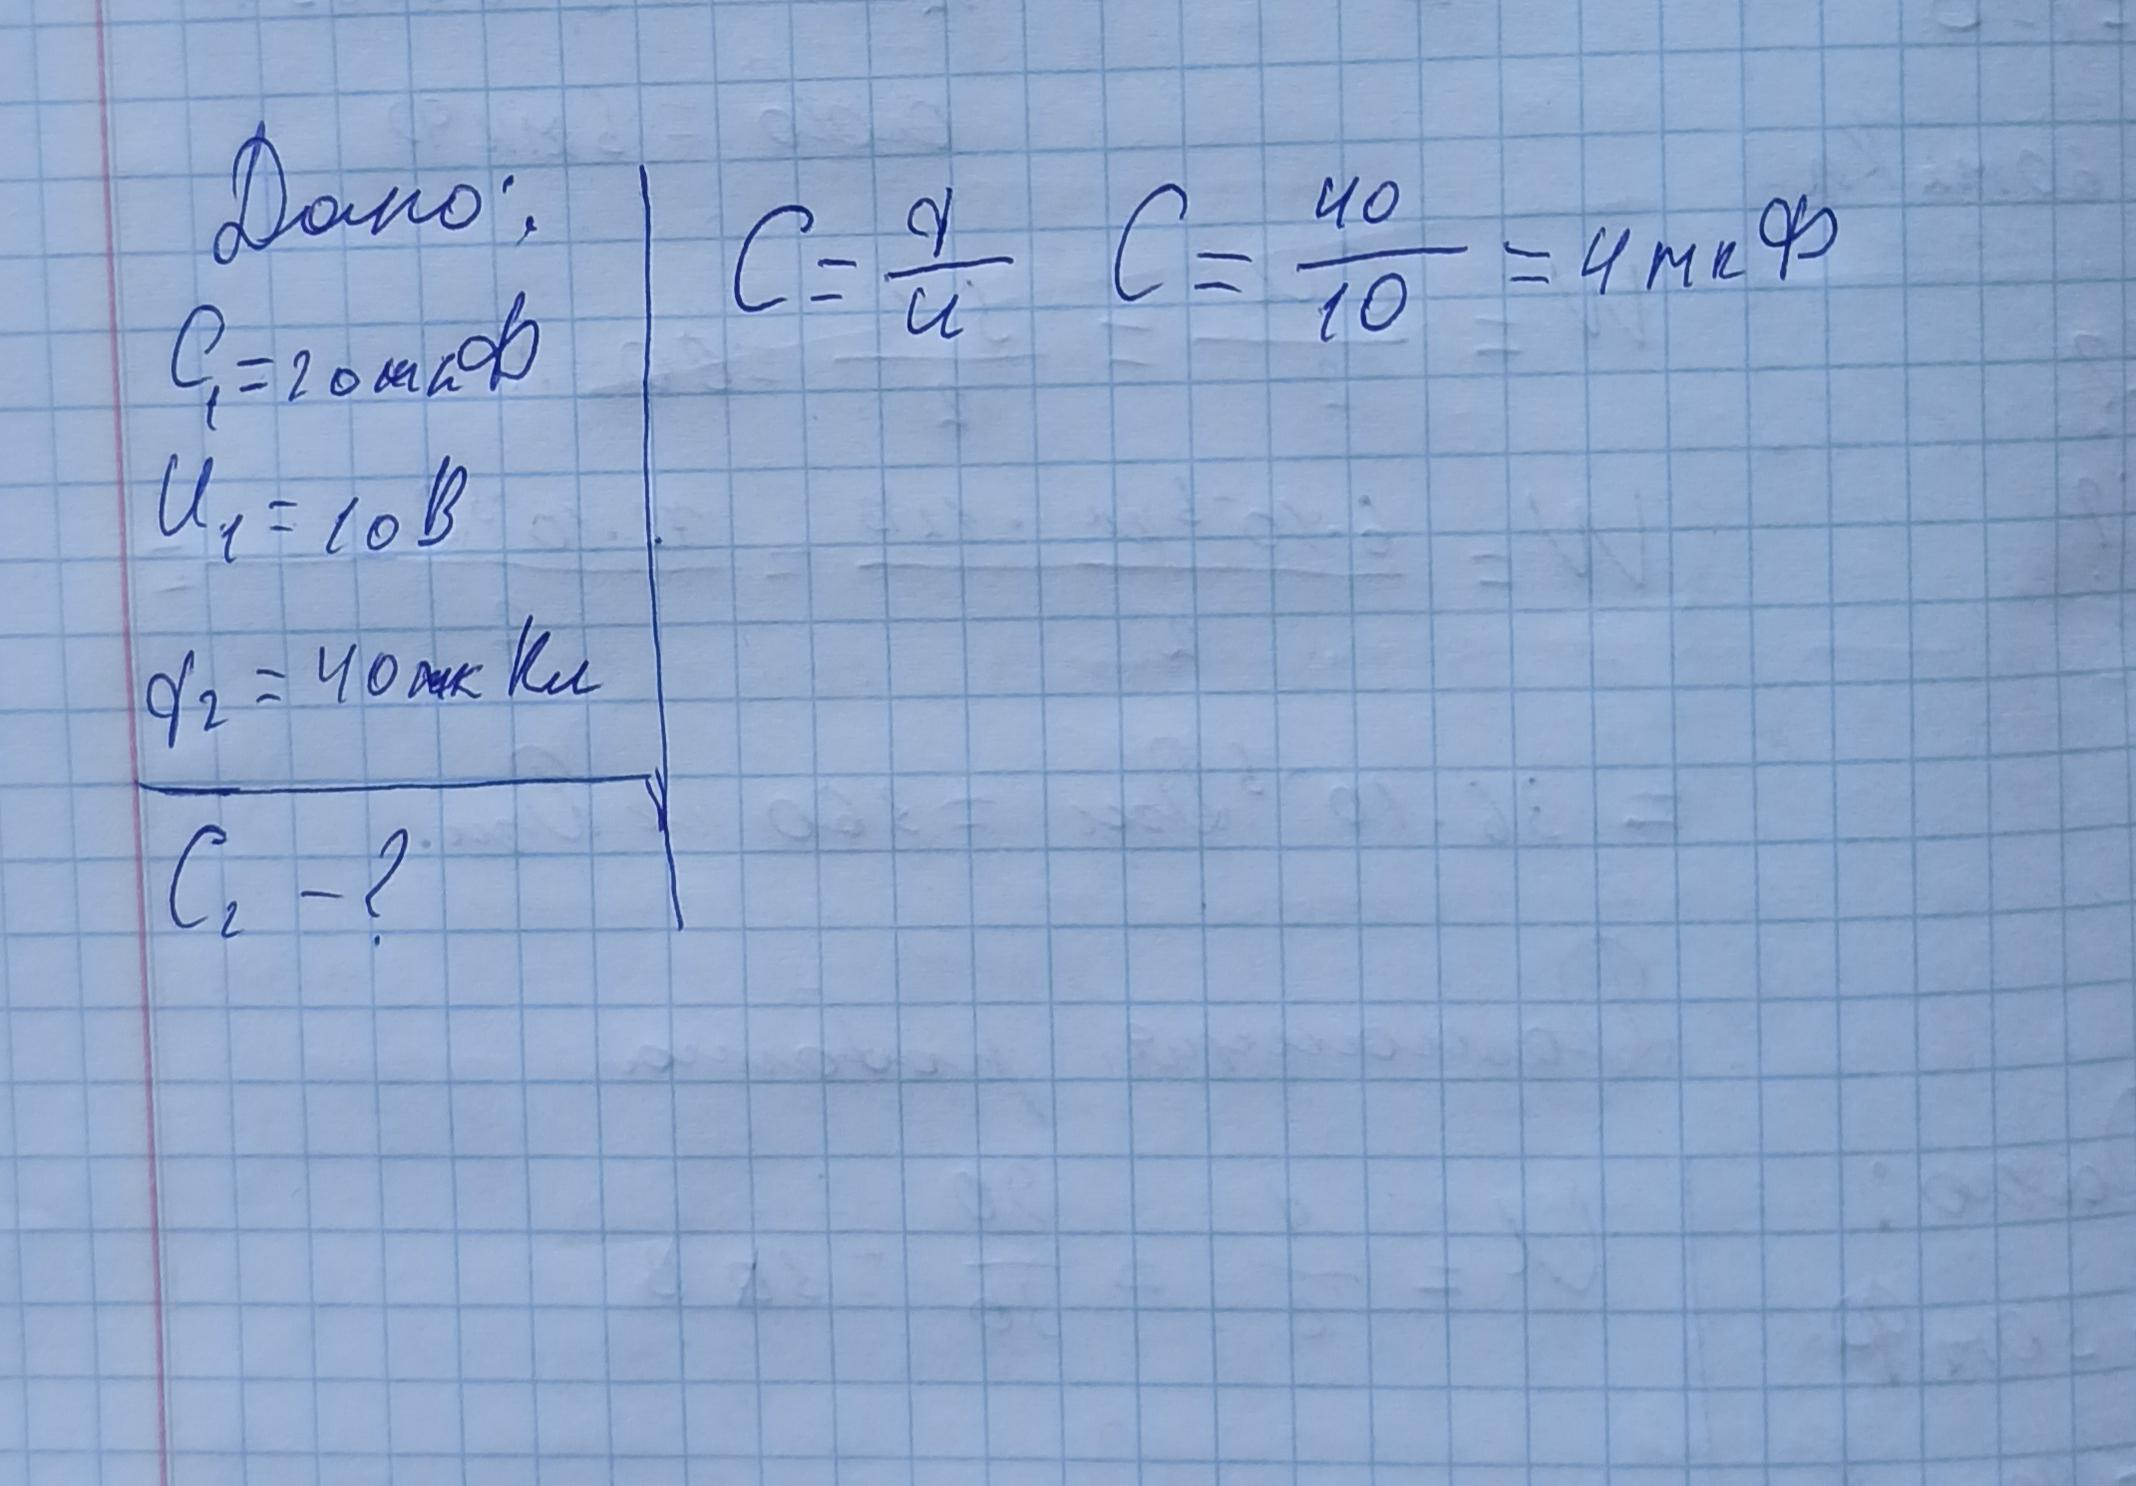 Дано:
C₁ = 20 мкФ
U₁ = 10 В
q₂ = 40 мк Кл
C₂ - ?
C = q/U C = 40/10 = 4 мкФ